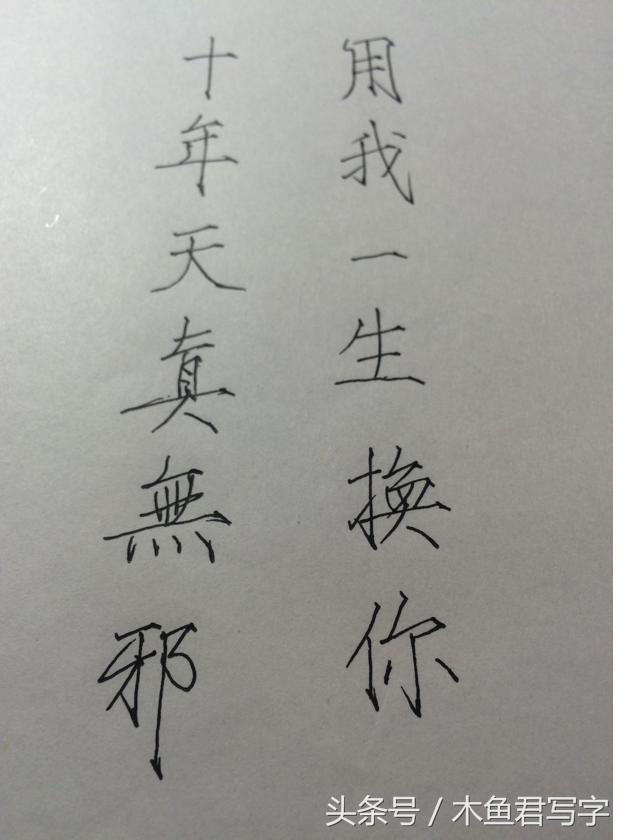 用我一生換你
十年天真無邪
头条号 / 木鱼君写字